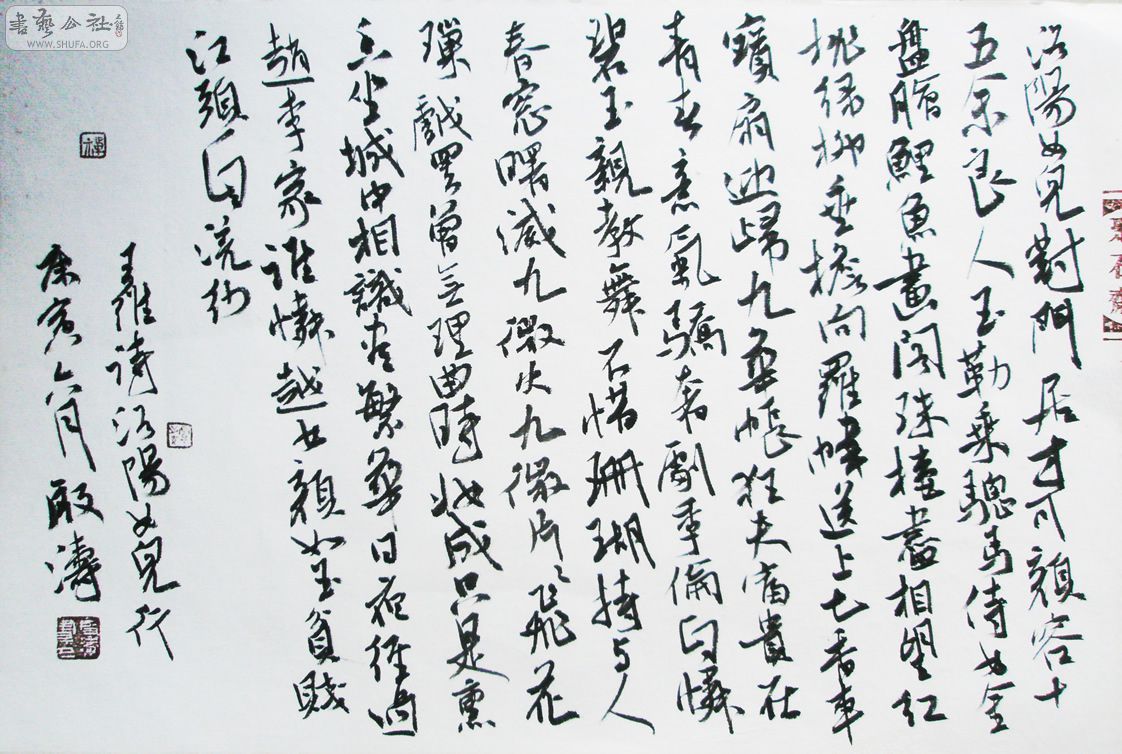 書藝公社
WWW.SHUFA.ORG
洛陽女兒對門居才可顏容十
五余良人玉勒乘驄馬侍女金
盤膾鯉魚畫閣珠樓盡相望紅
桃綠柳垂檐向羅幃送上七香車
寶扇迎歸九華帳狂夫富貴在
青春意氣驕奢劇季倫自憐
碧玉親教舞不惜珊瑚持與人
春窗曙滅九微火九微片〻飛花
璅戲罷曾無理曲時妝成只是熏
香坐城中相識盡繁華日夜經過
趙李家誰憐越女顏如玉貧賤
江頭自浣紗
王維詩洛陽女兒行
庚寅六月殷濤